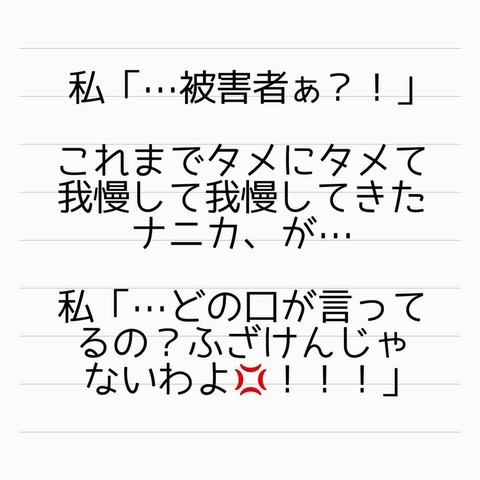 私「…被害者ぁ？！」
これまでタメにタメて
我慢して我慢してきた
ナニカ、が…
私「…どの口が言って
るの？ふざけんじゃ
ないわよ💢！！！」